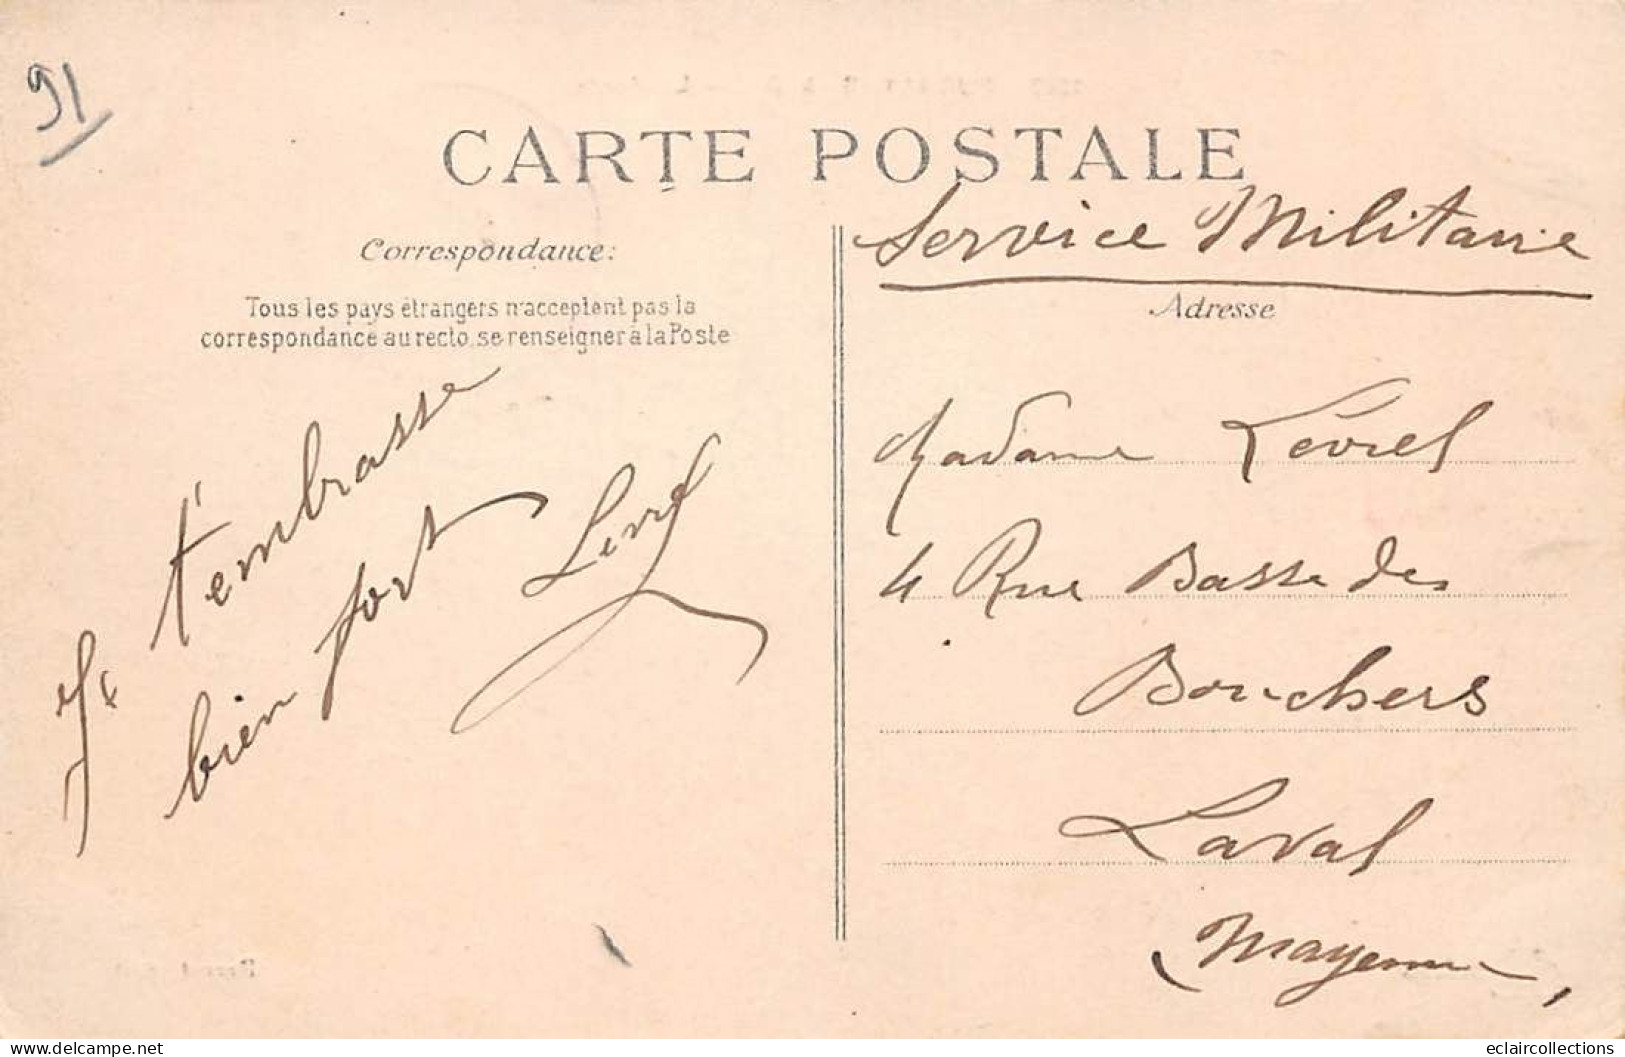 91
CARTE POSTALE
Service Militaire
Correspondance:
Tous les pays étrangers n'acceptent pas la
correspondance au recto, se renseigner à la Poste
Je t'embrasse
bien fort
Adresse
Madame Levrel
4 Rue Basse des
Bouchers
Laval
(Mayenne,
eclaircollections
© www.delcampe.net